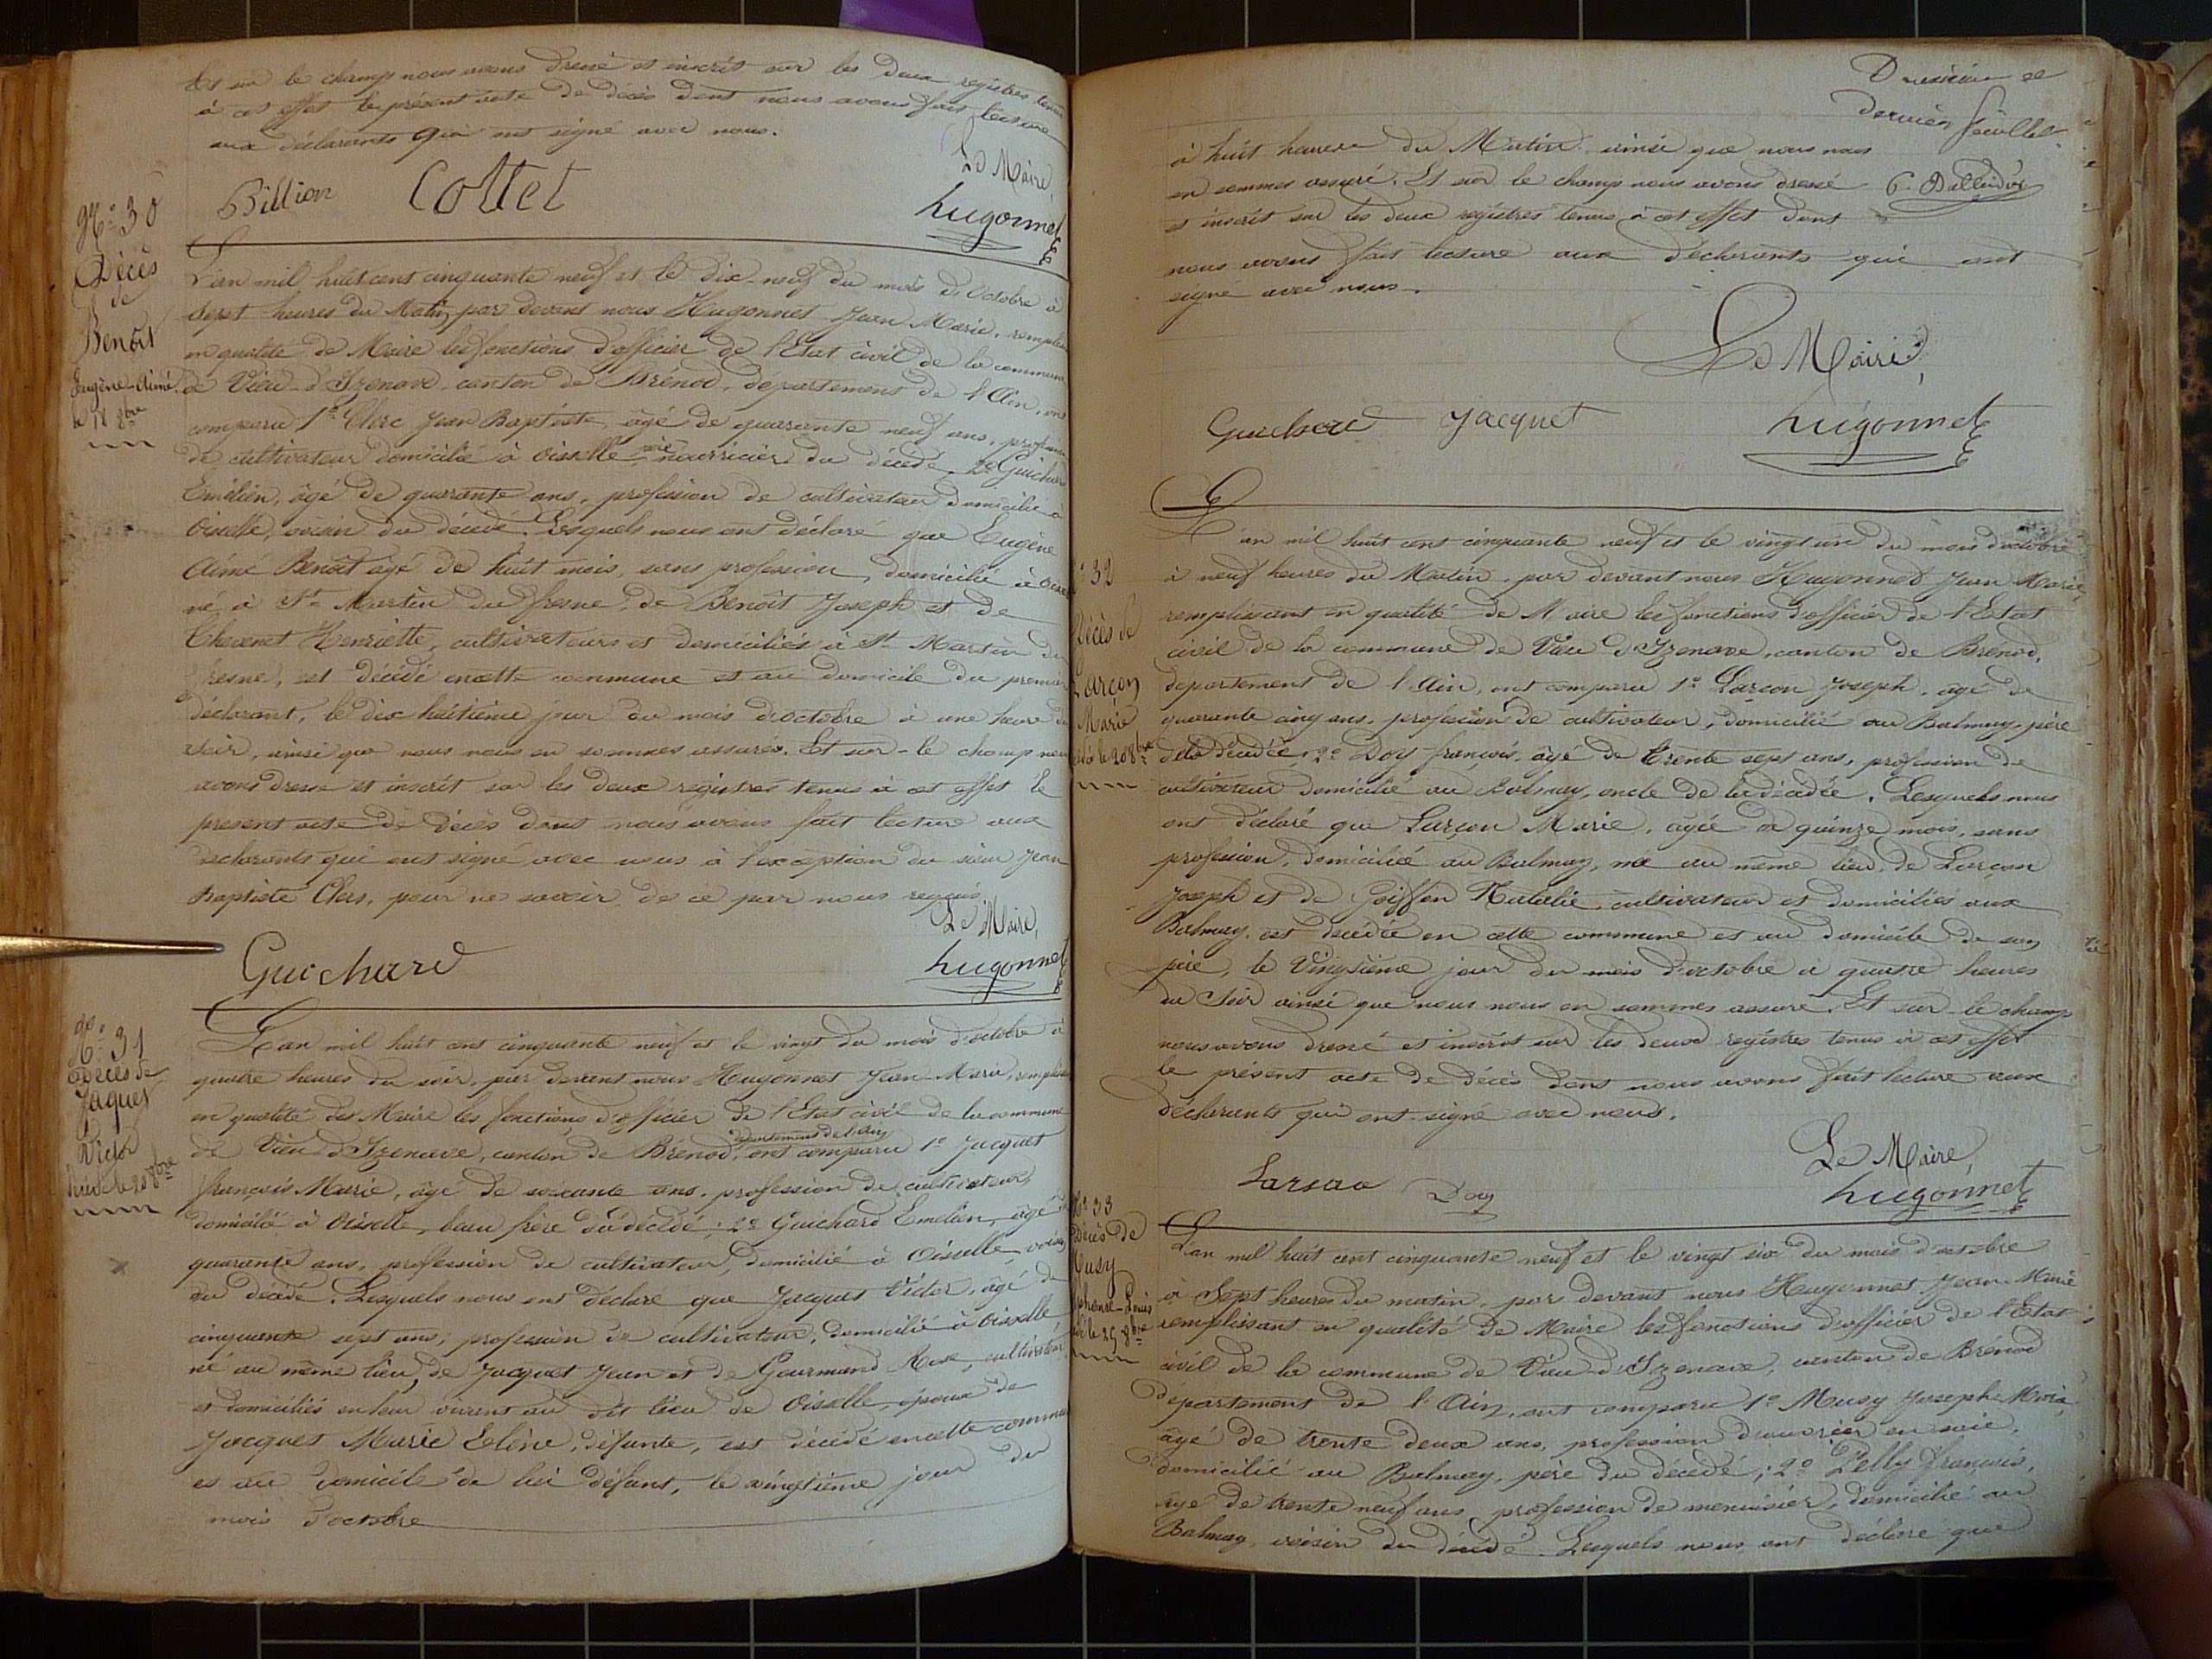 Et sur le champ nous avons dressé et inscrit sur les deux registres tenus
à cet effet le présent acte de décès dont nous avons fait lecture
aux déclarants qui ont signé avec nous.
Le Maire,
Billion Collet hugonnet
N° 30
Décès
de
Benoit
Eugène-Aimé
le 18 8bre
L'an mil huit cent cinquante neuf et le dix-neuf du mois d'Octobre à
Sept heures du Matin, par devant nous Hugonnet Jean Marie, remplis
en qualité de Maire les fonctions d'officier de l'Etat civil de la commune
de Vieu-d'Izenave, canton de Brénod, département de l'Ain, ont
comparu 1° Clerc Jean Baptiste, âgé de quarante neuf ans, profession
de cultivateur domicilié à Oisselle père nourricier du décédé. 2° Guichard
Emélien, âgé de quarante ans, profession de cultivateur domicilié à
Oiselle, voisin du décédé. Lesquels nous ont déclaré que Eugène
Aimé Benoît âgé de huit mois, sans profession, domicilié à
né à St Martin du fresne, de Benoît Joseph et de
Chevenet Henriette, cultivateurs et domiciliés à St Martin du
fresne, est décédé en cette commune et au domicile du premier
déclarant, le dix huitième jour du mois d'octobre à une heure du
soir, ainsi que nous nous en sommes assurés. Et sur-le champ nous
avons dressé et inscrit sur les deux registres tenus à cet effet le
present acte de décès dont nous avons fait lecture aux
déclarants qui ont signé avec nous à l'exception du sieur Jean
Baptiste Clerc, pour ne savoir de ce par nous requis.
Le Maire,
Guichard hugonnet
N° 31
Décès de
Jaquet
Victor
le 20 8bre
L'an mil huit cent cinquante neuf et le vingt du mois d'octobre à
quatre heures du soir, par devant nous Hugonnet Jean-Marie, remplis
en qualité de Maire les fonctions d'officier de l'Etat civil de la commune
de Vieu d'Izenave, canton de Brénod, département de l'Ain, ont comparu 1° Jacquet
françois Marie, âgé de soixante ans, profession de cultivateur,
domicilié à Oiselle, beau frère du décédé; 2° Guichard Emélien, âgé de
quarante ans, profession de cultivateur, domicilié à Oisselle, voisin
du décédé. Lesquels nous ont déclaré que Jacquet Victor, âgé de
cinquante sept ans, profession de cultivateur, domicilié à Oisselle,
né au même lieu, de Jacquet Jean et de Gourmand Rose, cultivateurs
et domiciliés en leur vivant au dit lieu de Oiselle, époux de
Jacquet Marie Elène, défunte, est décédé en cette commune
et au domicile de lui défunt, le vingtième jour du
mois d'octobre
et
dernier feuillet.
à huit heures du Matin ainsi que nous nous
en sommes assuré. Et sur le champ nous avons dressé
et inscrit sur les deux registres tenus à cet effet dont
nous avons fait lecture aux déclarants qui ont
signé avec nous.
Le Maire,
Guichard Jacquet hugonnet
32
Décès de
Larçon
Marie
le 20 8bre
L'an mil huit cent cinquante neuf et le vingt un du mois d'octobre
à neuf heures du Matin, par devant nous Hugonnet Jean Marie,
remplissant en qualité de Maire les fonctions d'officier de l'Etat
civil de la commune de Vieu d'Izenave, canton de Brénod,
département de l'Ain, ont comparu 1° Larçon Joseph, âgé de
quarante cinq ans, profession de cultivateur, domicilié au Balmay, père
de la décédée; 2° Doy françois, âgé de trente sept ans, profession de
cultivateur domicilié au Balmay, oncle de la décédée. Lesquels nous
ont déclaré que Larçon Marie, âgée de quinze mois, sans
profession, domiciliée au Balmay, née au même lieu, de Larçon
Joseph et de Goiffon Natalie, cultivateurs et domiciliés aux
Balmay, est décédée en cette commune et au domicile de son
père, le Vingtième jour du mois d'octobre à quatre heures
du Soir ainsi que nous nous en sommes assuré. Et sur-le champ
nous avons dressé et inscrit sur les deux registres tenus à cet effet
le présent acte de décès dont nous avons fait lecture aux
déclarants qui ont signé avec nous.
Le Maire,
Doy hugonnet
N° 33
Décès de
Musy
le 25 8bre
L'an mil huit cent cinquante neuf et le vingt six du mois d'octobre
à Sept heures du matin, par devant nous Hugonnet Jean-Marie
remplissant en qualité de Maire les fonctions d'officier de l'Etat
civil de la commune de Vieu-d'Izenave, canton de Brénod
département de l'Ain, ont comparu 1° Musy Joseph-Marie,
âgé de trente deux ans, profession d'ouvrier en soie,
domicilié au Balmay, père du décédé; 2° Pelly françois,
âgé de trente neuf ans, profession de menuisier, domicilié au
Balmay, voisin du décédé. Lesquels nous ont déclaré que